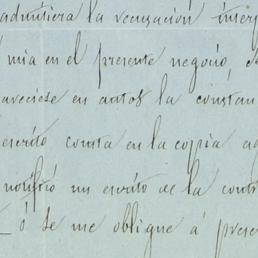 admitiera la recusación interp
mia en el presente negocio, e
areciese en autos la constan
escrito consta en la copia ag
notifió un escrito de la contr
ó se me obligue á prese